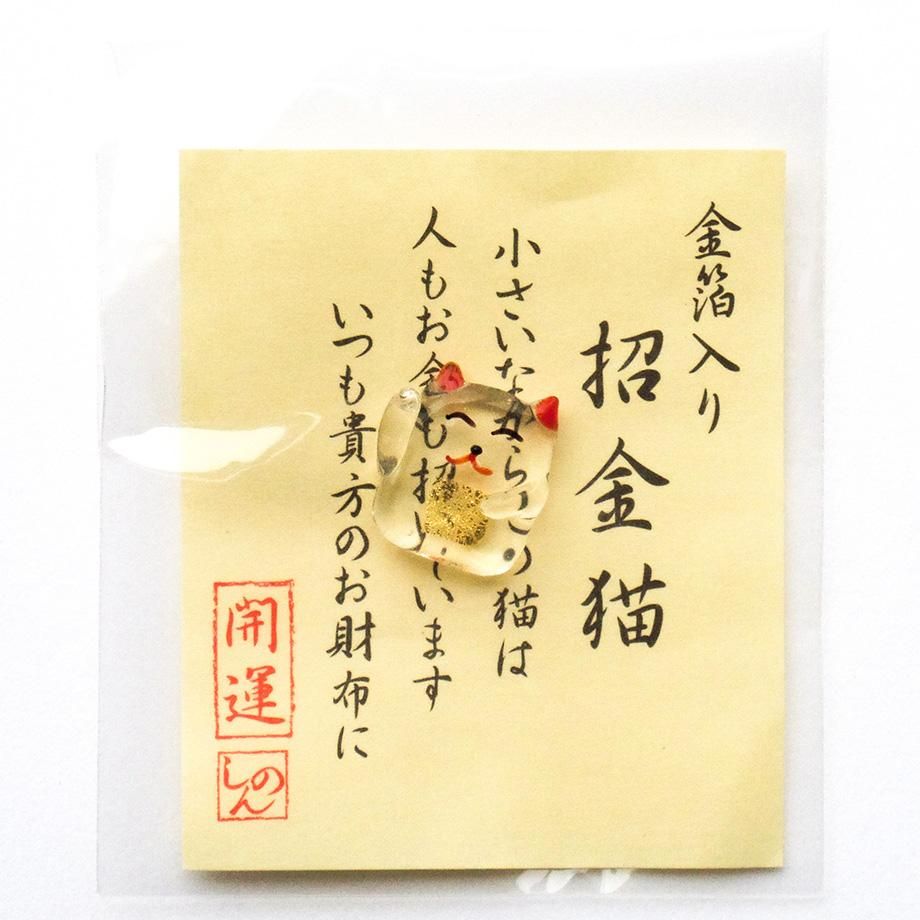 金箔入り
招金猫
小さいながらこの猫は
人もお金も招いています
いつも貴方のお財布に
開運
しのん